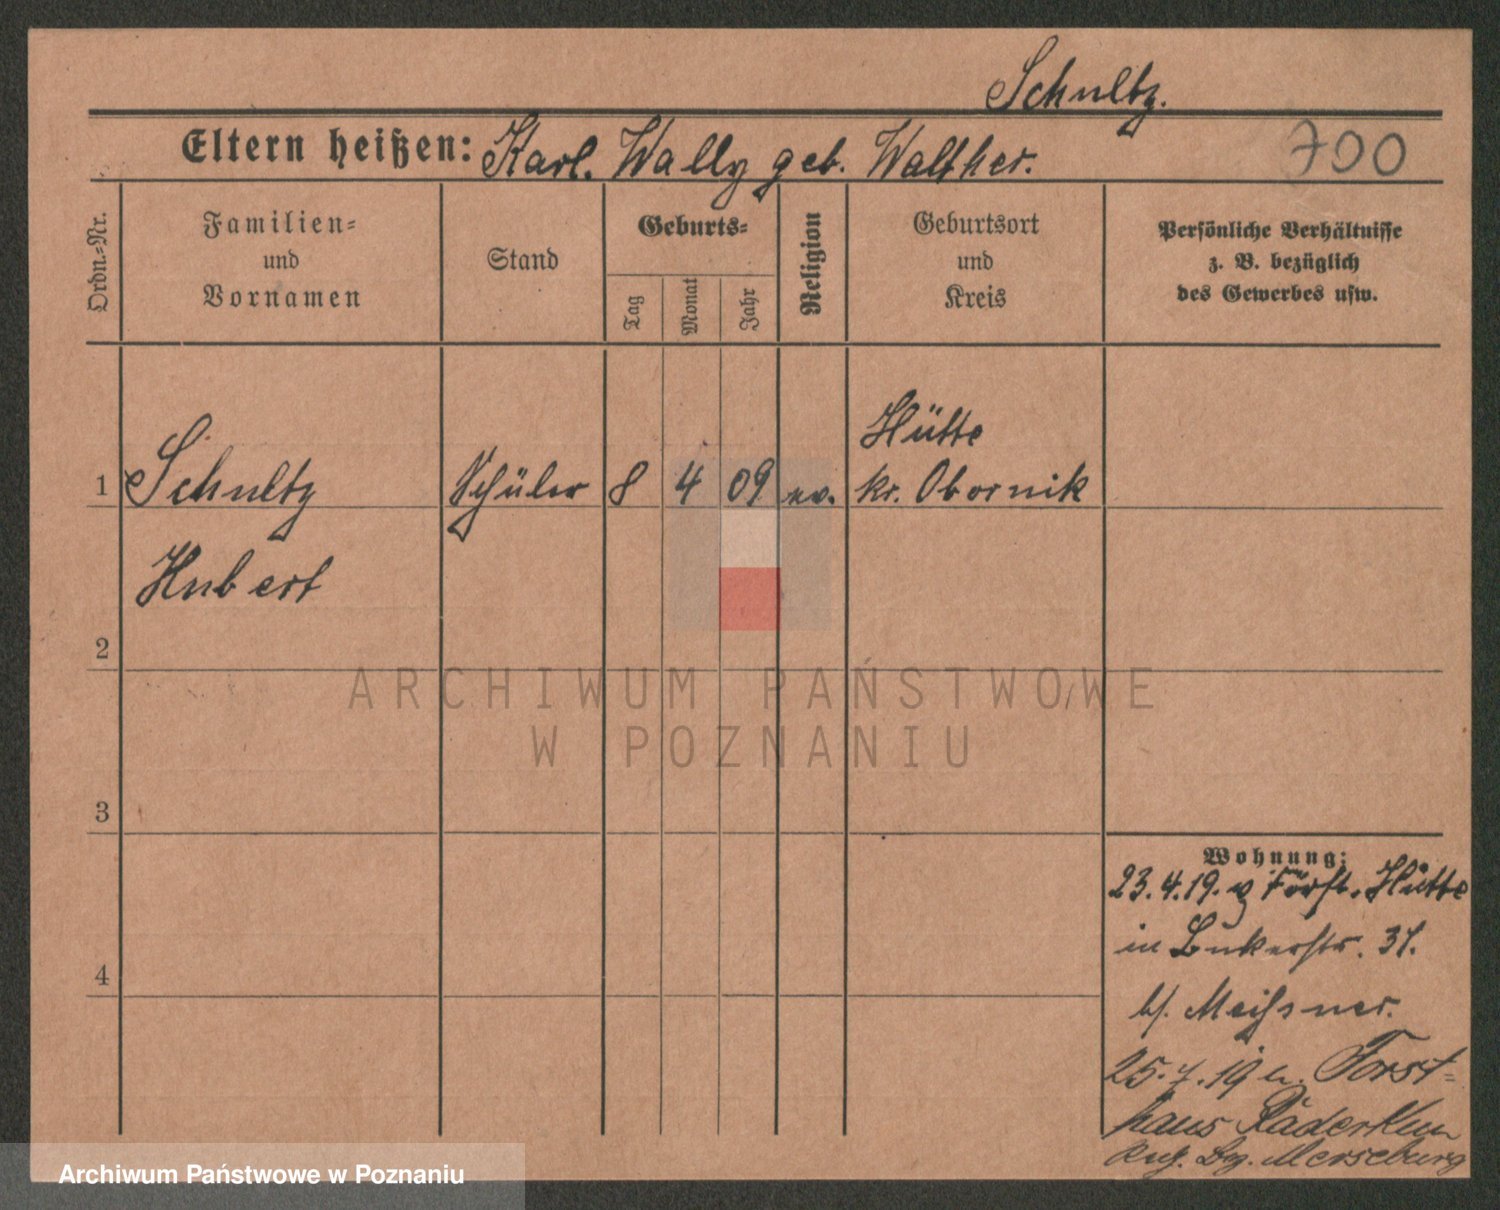 Schultz.
Eltern heißen: Karl. Wally geb. Walther.
700
Ordn.-Nr.
Familien-
und
Vornamen
Stand
Geburts-
Tag
Monat
Jahr
Religion
Geburtsort
und
Kreis
Persönliche Verhältnisse
z. B. bezüglich
des Gewerbes usw.
Hütte
1 Schultz Schüler 8 4 09 ev. Kr. Obornik
Hubert
2
3
4
ARCHIWUM PAŃSTWOWE
W POZNANIU
Wohnung:
23.4.19. v Först. Hütte
in Bukerstr. 31.
b/. Meißner.
25.7.19 n. Forst-
haus
Reg. Bz. Merseburg
Archiwum Państwowe w Poznaniu